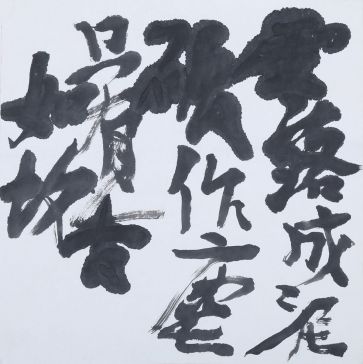 零落成泥
碾作塵
只有香
如故